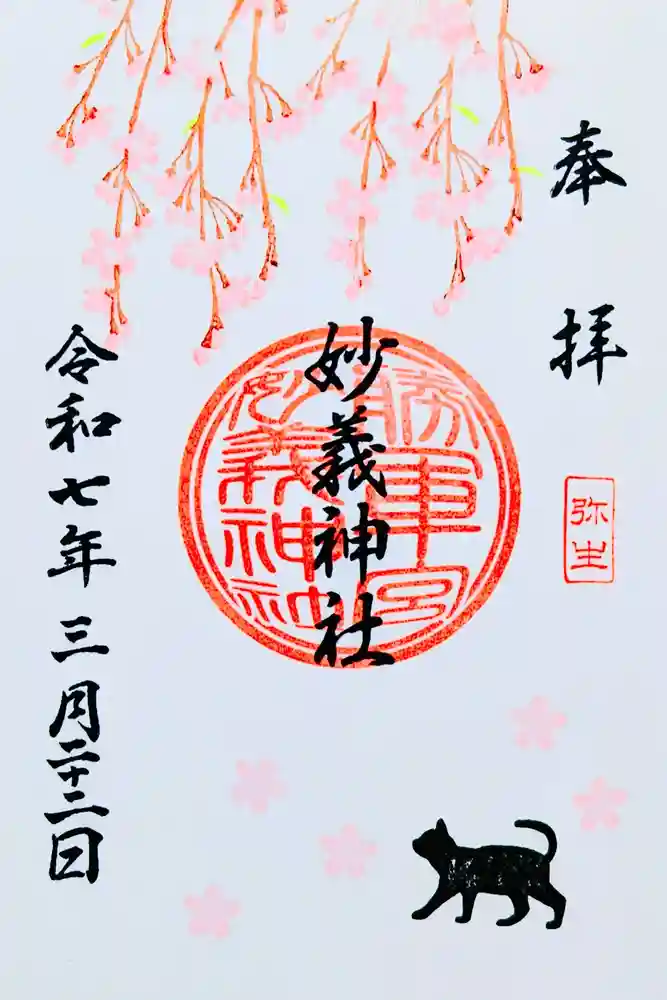 奉拝
弥生
勝軍宮
妙義神社
妙義神社
令和七年三月二十二日